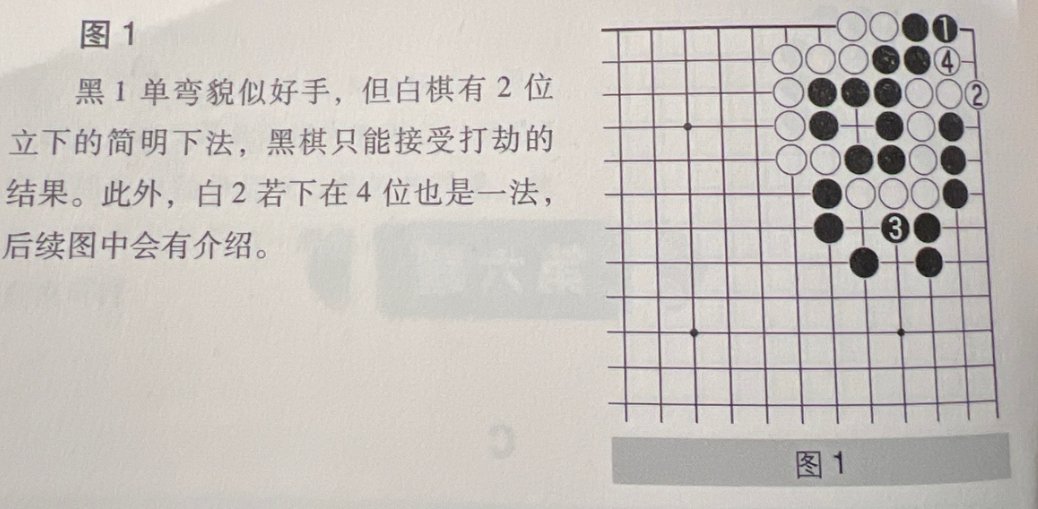 图 1
黑 1 单弯貌似好手，但白棋有 2 位
立下的简明下法，黑棋只能接受打劫的
结果。此外，白 2 若下在 4 位也是一法，
后续图中会有介绍。
1
4
2
3
图 1